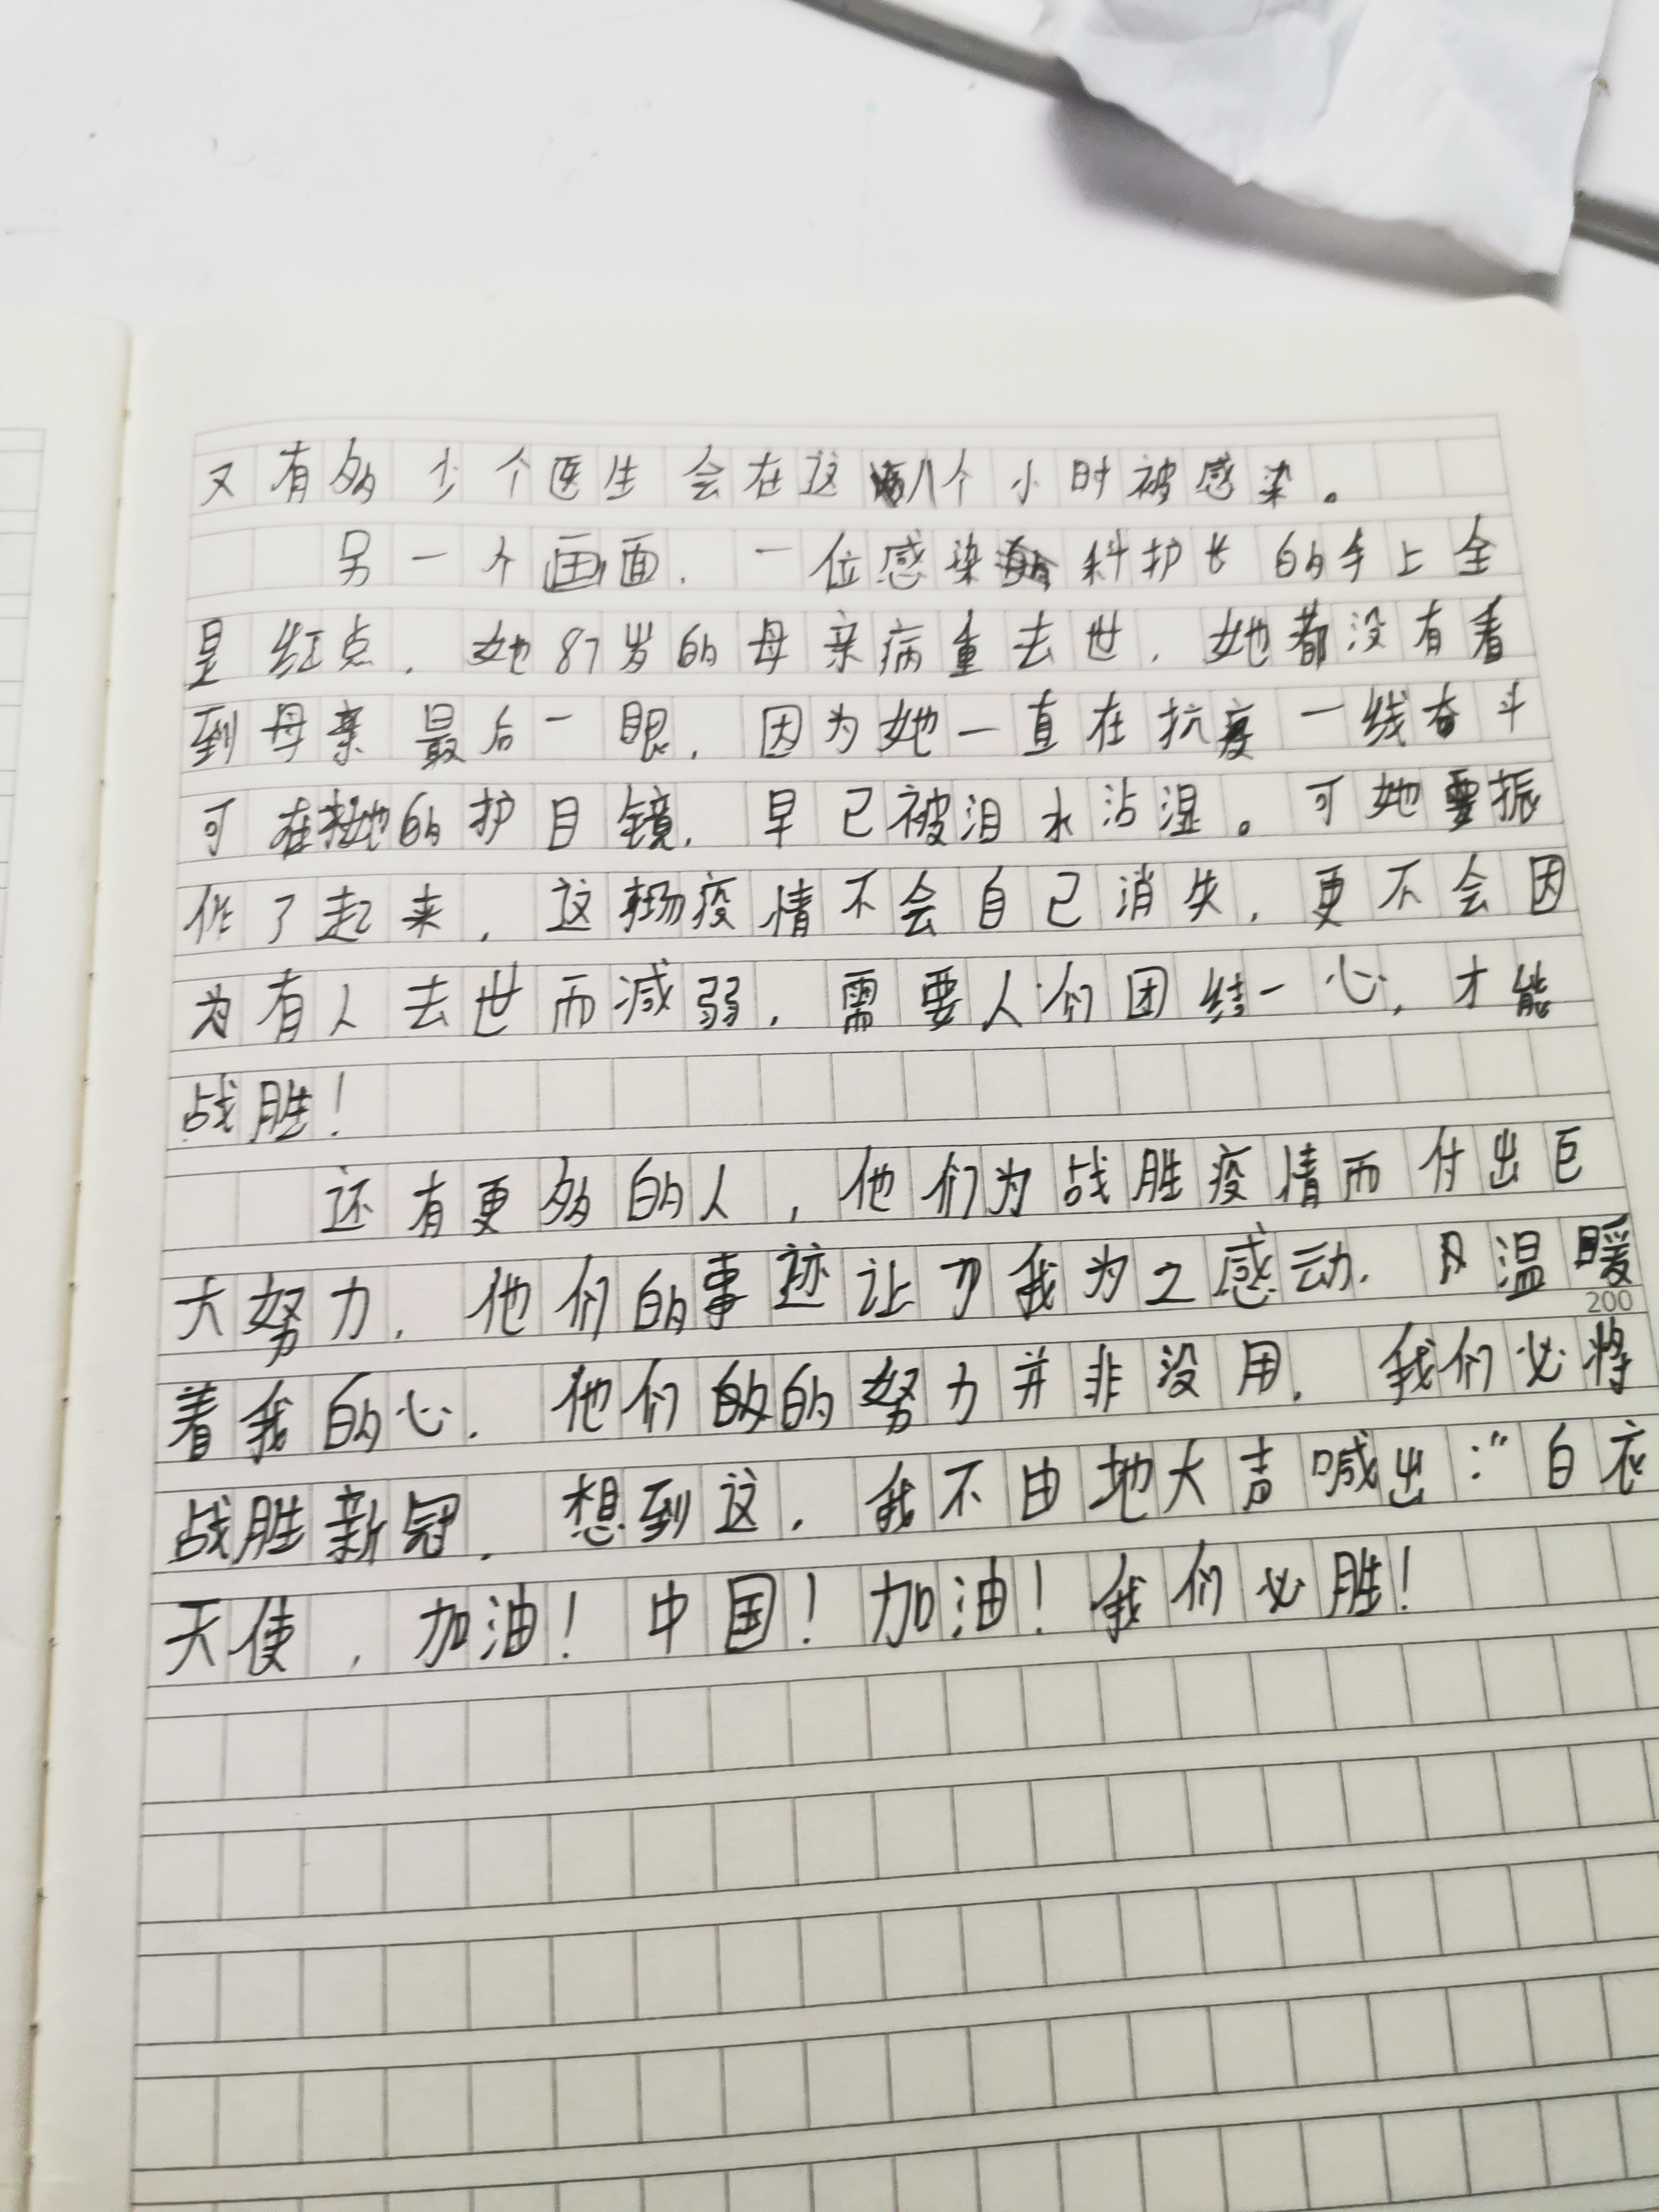 又有多少个医生会在这八个小时被感染。
另一个画面，一位感染科护长的手上全
是红点，她87岁的母亲病重去世，她都没有看
到母亲最后一眼，因为她一直在抗疫一线奋斗
可在她的护目镜，早已被泪水沾湿。可她要振
作了起来，这场疫情不会自己消失，更不会因
为有人去世而减弱，需要人们团结一心，才能
战胜！
还有更多的人，他们为战胜疫情而付出巨
大努力，他们的事迹让了我为之感动，温暖
200
着我的心，他们的努力并非没用，我们必将
战胜新冠，想到这，我不由地大声喊出：“白衣
天使，加油！中国！加油！我们必胜！